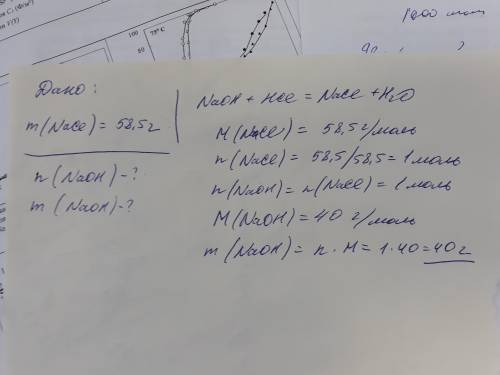 1000 моль
100
75° C
80
Дано:
m(NaCl) = 58,5г
n(NaOH) - ?
m(NaOH) - ?
NaOH + HCl = NaCl + H₂O
M(NaCl) = 58,5 г/моль
n(NaCl) = 58,5/58,5 = 1 моль
n(NaOH) = n(NaCl) = 1 моль
M(NaOH) = 40 г/моль
m(NaOH) = n · M = 1·40 = 40 г